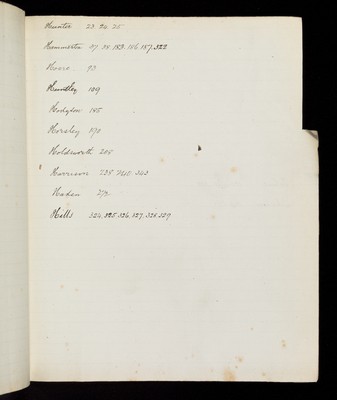 Hunter 23. 24. 25
37. 38. 183. 186. 187. 322
Hoare 93
Huntley 109
Hodgson 165
Horsley 170
Holdsworth 205
Harrison 235. 343
Haden
Hills 324. 325. 326. 327. 328. 329